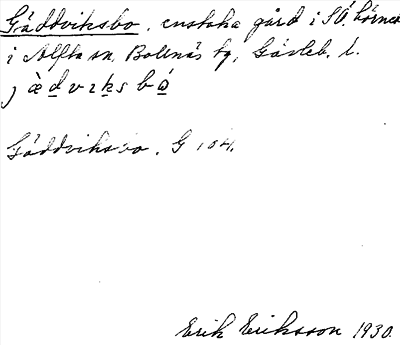 Gäddviksbo. enstaka gård i SÖ. hörnet
i Alfta sn. Bollnäs tg, Gävleb. l.
j ὰ̀ d v ı k s b ώ
Gäddviksbo. G 104.
Erik Eriksson 1930.